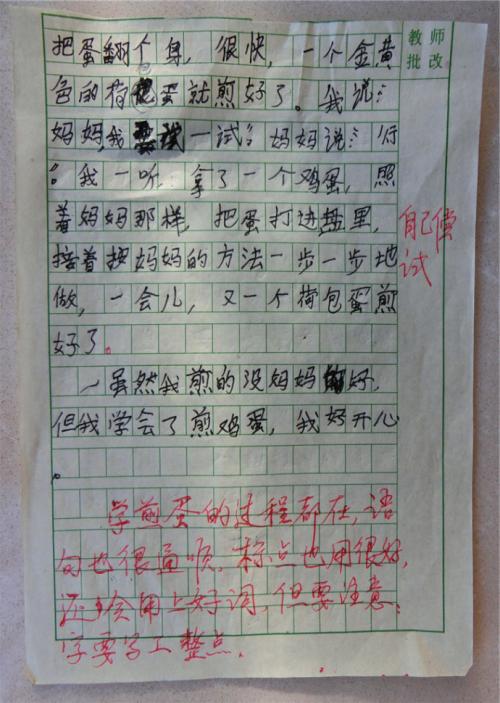 把蛋翻个身，很快，一个金黄
教师
批改
色的荷包蛋就煎好了。我说：“
妈妈，我要试一试”妈妈说：“行
”。我一听，拿了一个鸡蛋，照
着妈妈那样，把蛋打进盐里，
自己尝
试
接着把妈妈的方法一步一步地
做，一会儿，又一个荷包蛋煎
好了。
虽然我煎的没妈妈好，
但我学会了煎鸡蛋，我好开心
。
学前蛋的过程都在，语
句也很通顺，标点也用很好，
还会用上好词，但要注意：
字要写工整点．